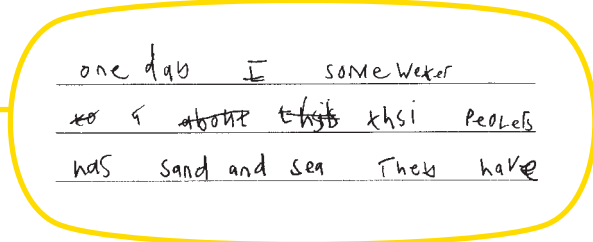 one day I someWexer
xo a about thgb xhsi PeoLeLs
has sand and sea They have